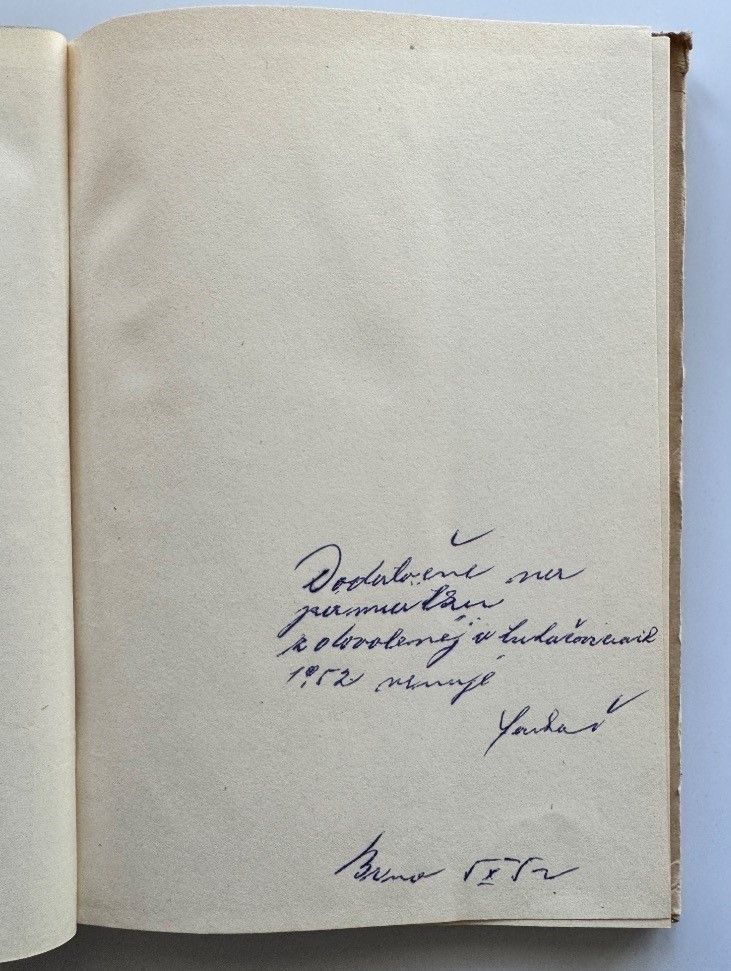 Dodatočne na
pamiatku
z dovolenej v Luhačoviciach
1952 venuje
Brno 5 X 52